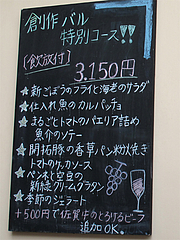 創作バル
特別コース!!
(飲放付)
3,150円
★新ごぼうのフライと海老のサラダ
★仕入れ魚のカルパッチョ
★まるごとトマトのパエリア詰め
魚介のソテー
★開拓豚の香草パン粉焼き
トマトのサルサソース
★ペンネと空豆の
クリームグラタン
★季節のジェラート
+500円で佐賀牛のとろける
追加OK.